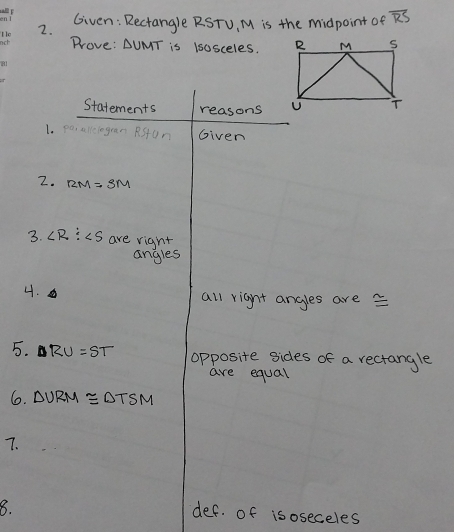 2. Given: Rectangle RSTU, M is the midpoint of RS
Prove: ΔUMT is isosceles.
R M S
U T
Statements reasons
1. parallelogram RSTU Given
2. RM = SM
3. <R & <S are right
angles
4. all right angles are ≅
5. RU = ST opposite sides of a rectangle
are equal
6. ΔURM ≅ ΔTSM
7.
8. def. of isoseceles